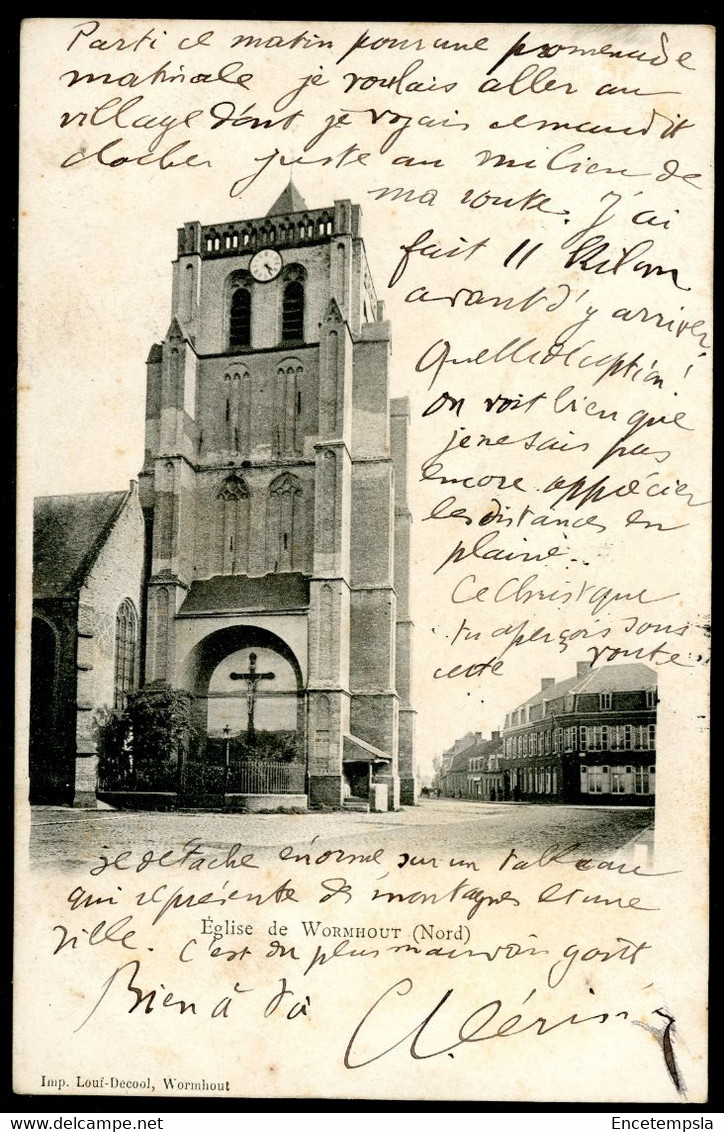 Parti ce matin pour une promenade
matinale je voulais aller au
village dont je voyais le maudit
clocher juste au milieu de
ma route. J'ai
fait 11 Kilom
avant d'y arriver.
Quelle déception!
On voit bien que
je ne sais pas
encore apprécier
les distances en
plaine..
Ce Christ que
tu aperçois sous
cette voute
se détache énorme sur un tableau
qui représente des montagnes et une
ville.
Église de WORMHOUT (Nord)
C'est du plus mauvais goût
Bien à toi
Imp. Louf-Decool, Wormhout
Encetempsla